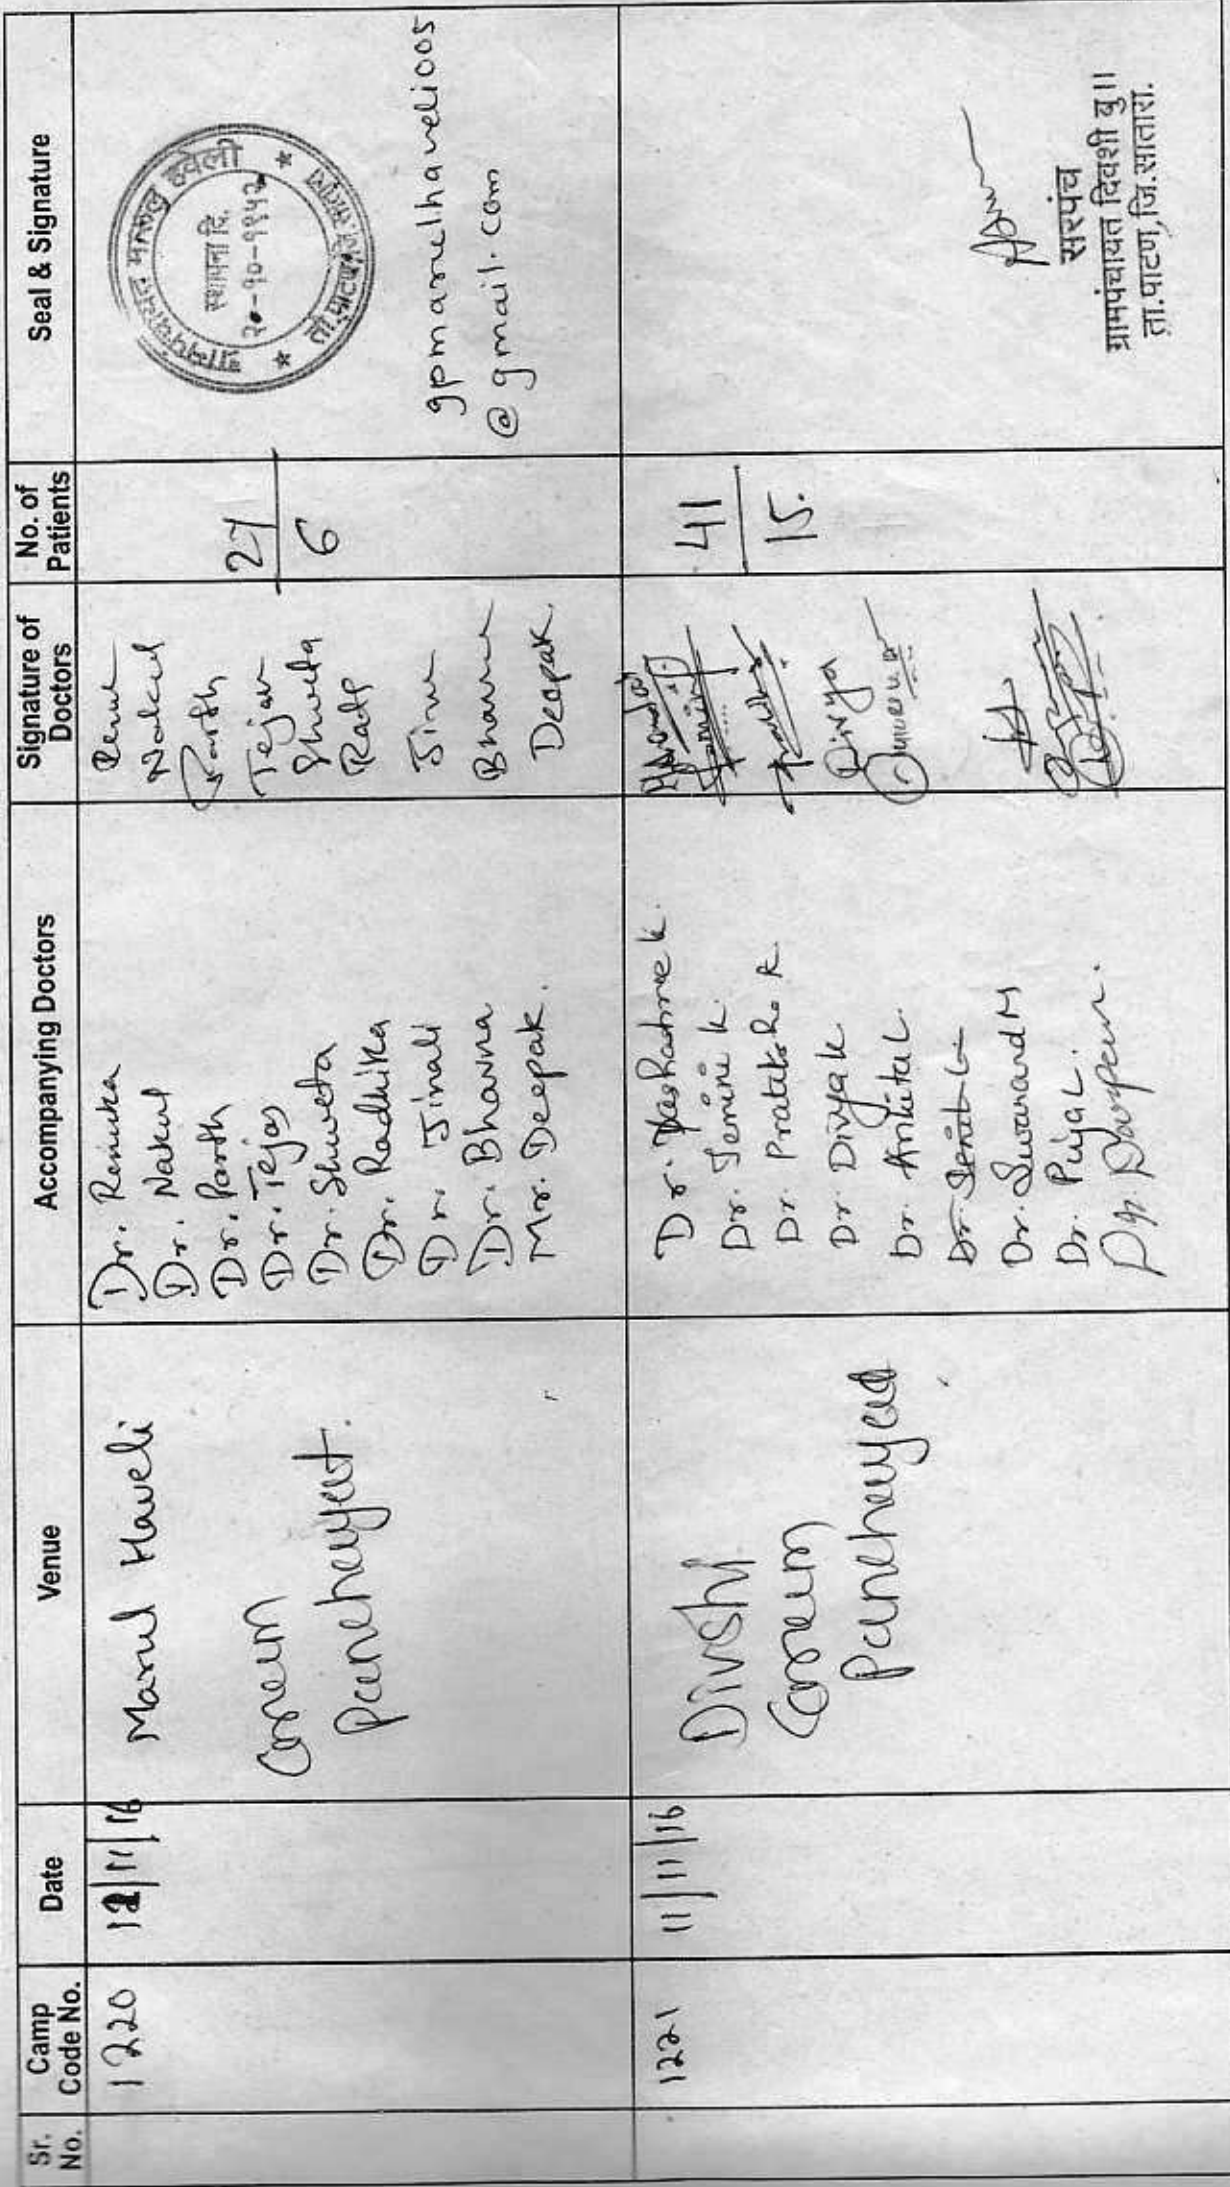 Sr. No.
Camp Code No.
Date
Venue
Accompanying Doctors
Signature of Doctors
No. of Patients
Seal & Signature
1220
11/11/16
Marul Haveli
Gram
Panchayat.
Dr. Renuka
Dr. Nakul
Dr. Parth
Dr. Tejas
Dr. Shweta
Dr. Radhika
Dr. Jinali
Dr. Bhavna
Mr. Deepak.
Renu
Nakul
Parth
Tejas
Shweta
Radh
Jinu
Bhavna
Deepak.
27
6
ग्रामपंचायत मारुल हवेली
स्थापना दि.
२०-१०-१९५२
ता.पाटण,जि.सातारा
gpmarulhaveli005
@gmail.com
1221
11/11/16
Divshi
Gram
Panchayat
Dr. Yashashree k.
Dr. Jemini k.
Dr. Pratiksha R.
Dr. Divya k.
Dr. Ankita L.
Dr. Swanand M
Dr. Puja L.
Divya
41
15.
सरपंच
ग्रामपंचायत दिवशी बु ॥
ता.पाटण,जि.सातारा.